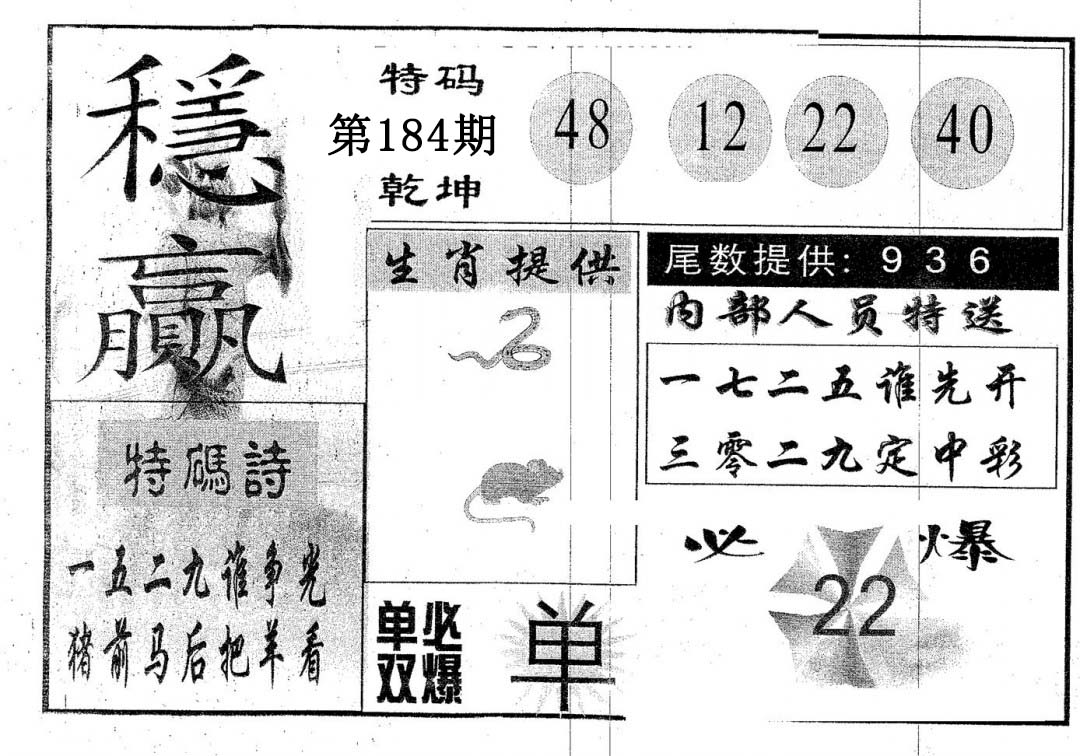 穩
贏
特码
第184期
乾坤
48 12 22 40
生肖提供
尾数提供: 9 3 6
内部人员特送
一七二五谁先开
三零二九定中彩
特碼詩
一五二九谁争光
猪前马后把羊看
单双必爆
单
必 22 爆